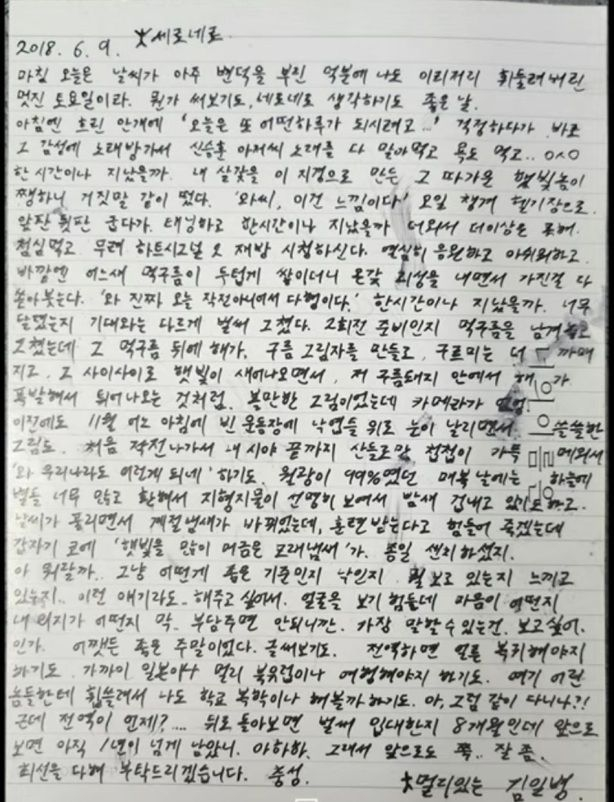 2018. 6. 9. 大세로네로.
마침 오늘은 날씨가 아주 변덕을 부린 덕분에 나도 이리저리 휘둘려버린
멋진 토요일이라. 뭔가 써보기도, 네로네로 생각하기도 좋은 날.
아침엔 흐린 안개에 '오늘은 또 어떤하루가 되시려고...' 걱정하다가 바로
그 감성에 노래방가서 신승훈 아저씨 노래를 다 말아먹고 욕도 먹고.. ㅇㅅㅇ
한시간이나 지났을까. 내 살갗을 이 지경으로 만든 그 따가운 햇빛놈이
쨍하니 거짓말 같이 떴다. '와씨, 이건 느낌이다' 오일 챙겨 헬기장으로.
앞판 뒷판 굽다가. 태닝하고 한시간이나 지났을까 더워서 더이상은 못해.
점심먹고 무려 하트시그널 2 재방 시청하신다. 열심히 응원하고 아쉬워하고.
바깥엔 어느새 먹구름이 두텁게 쌓이더니 온갖 괴성을 내면서 가진걸 다
쏟아붓는다. '와 진짜 오늘 작전아니여서 다행이다.' 한시간이나 지났을까. 너무
달렸는지 기대와는 다르게 벌써 그쳤다. 2회전 준비인지 먹구름을 남겨놓고
그쳤는데 그 먹구름 뒤에 해가. 구름 그림자를 만들고, 구르미는 더 까매
지고. 그 사이사이로 햇빛이 새어나오면서, 저 구름돼지 안에서 해가
폭발해서 튀어나오는 것처럼. 볼만한 그림이었는데 카메라가
이전에도 11월 어느 아침에 빈 운동장에 낙엽들 위로 눈이 날리면서 쓸쓸한
그림도. 처음 작전나가서 내 시야 끝까지 산들로만 첩첩이 가득 메워서
'와 우리나라도 이렇게 되네' 하기도. 월광이 99%였던 매복날에는 하늘에
별들 너무 많고 환해서 지형지물이 선명히 보여서 밤새 겁내고 있기도하고.
날씨가 풀리면서 계절냄새가 바뀌었는데, 훈련받는다고 힘들어 죽겠는데
갑자기 코에 '햇빛을 많이 머금은 모래냄새'가. 종일 센치하셨지.
아 뭐랄까.. 그냥 어떻게 좁은 기준인지 낙인지 뭘 보고 있는지 느끼고
있는지.. 이런 얘기라도.. 해주고 싶어서. 얼굴을 보기 힘든데 마음이 어떤지
내 의지가 어떤지 막.. 부담주면 안되니깐. 가장 말할수 있는건. 보고싶어.
인가. 어쨌든 좋은 주말이었다. 글써보기도. 전역하면 얼른 복귀해야지
하기도. 가까이 일본이나 멀리 북유럽이나 여행해야지 하기도. 여기 어린
놈들한테 휩쓸려서 나도 학교 복학이나 해볼까하기도. 아, 그럼 같이 다니나?!
근데 전역이 언제?.... 뒤로 돌아보면 벌써 입대한지 8개월인데 앞으로
보면 아직 1년이 넘게 남았니. 아하하. 그래서 앞으로도 쭉.. 잘 좀.
최선을 다해 부탁드리겠습니다. 충성. 大멀리있는 김일병